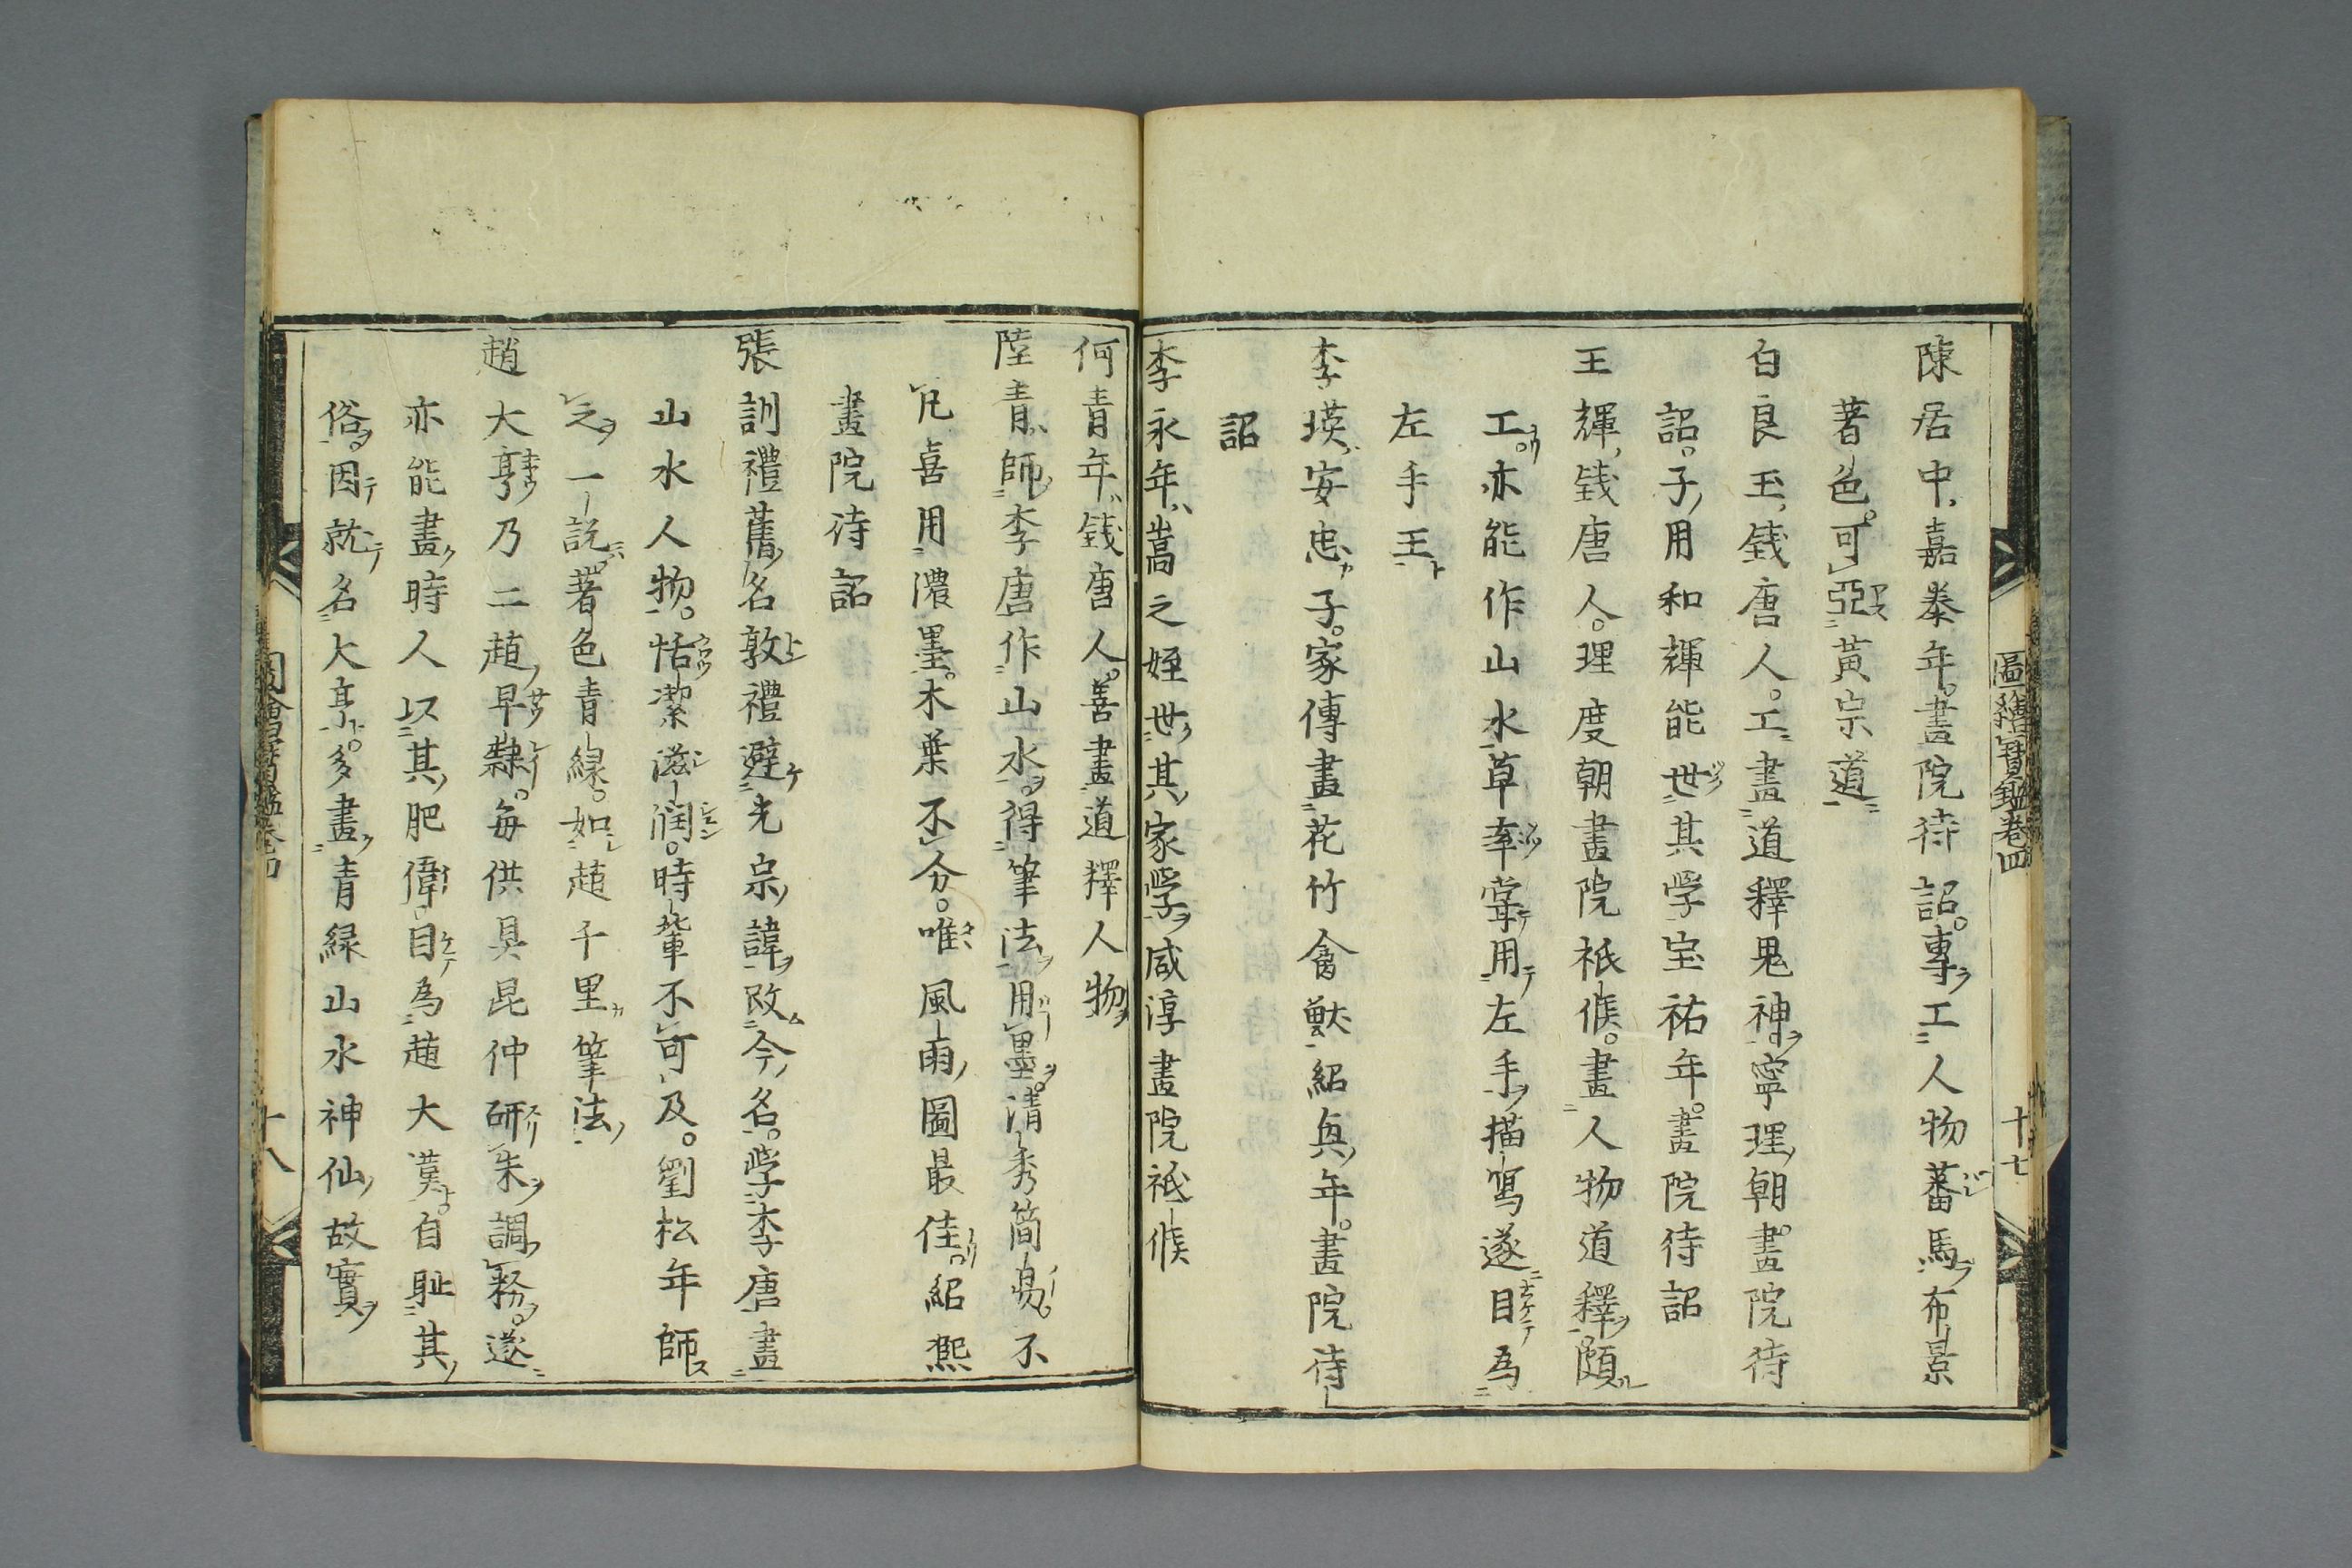 陳居中嘉泰年畫院待詔專工人物蕃馬布景
著色可亞黃宗道
白良玉錢唐人工畫道釋鬼神寧理朝畫院待
詔子用和輝能世其学宝祐年畫院待詔
王輝錢唐人理度朝畫院祇候畫人物道釋頗
工亦能作山水草率嘗用左手描寫遂目為
左手王
李瑛安忠子家傳畫花竹禽獸紹興年畫院待
詔
李永年嵩之姪世其家学咸淳畫院祇候
圖繪寶鑑卷四
十七
何青年錢唐人善畫道釋人物
陸青師李唐作山水得筆法用墨清秀簡易不
凡喜用濃墨木葉不分唯風雨圖最佳紹熙
畫院待詔
張訓禮舊名敦禮避光宗諱改今名学李唐畫
山水人物恬潔滋潤時輩不可及劉松年師
之一說著色青緑如趙千里筆法
趙大亨乃二趙早隸每供具昆仲研朱調務遂
亦能畫時人以其肥偉目為趙大漢自耻其
俗因就名大亨多畫青緑山水神仙故實
圖繪寶鑑卷四
十八